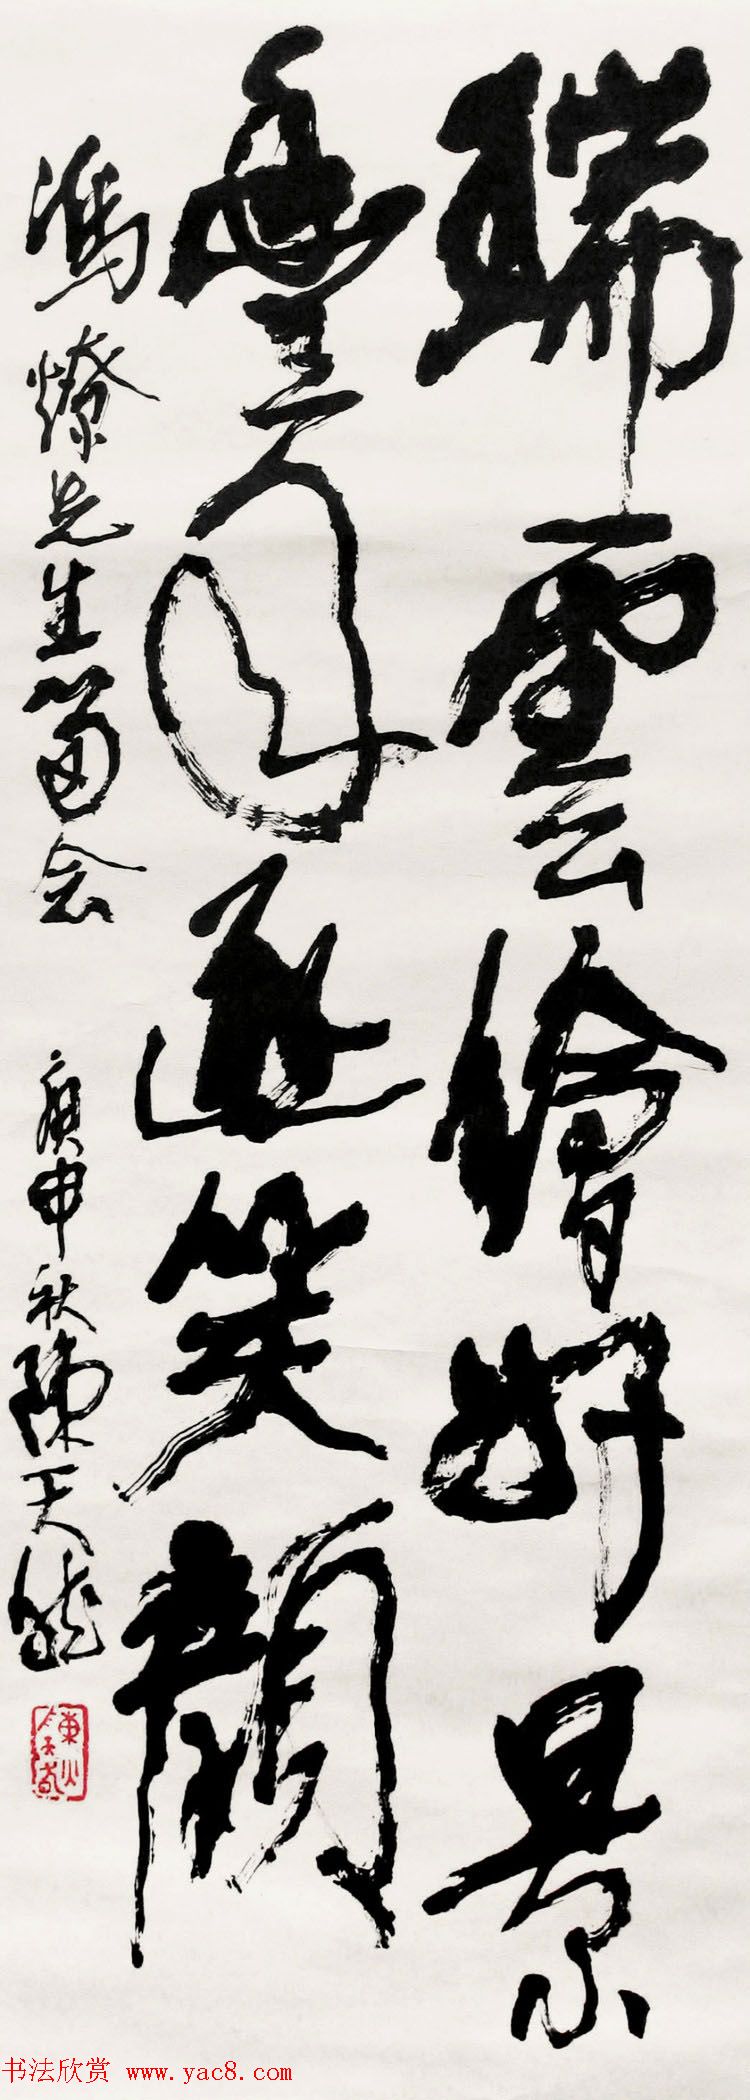 瑞雲繪好景
豐年逐笑顔
馮燎先生留念
庚申秋陳天然
书法欣赏 www.yac8.com